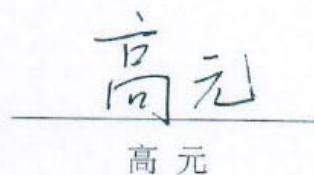 高元
高 元